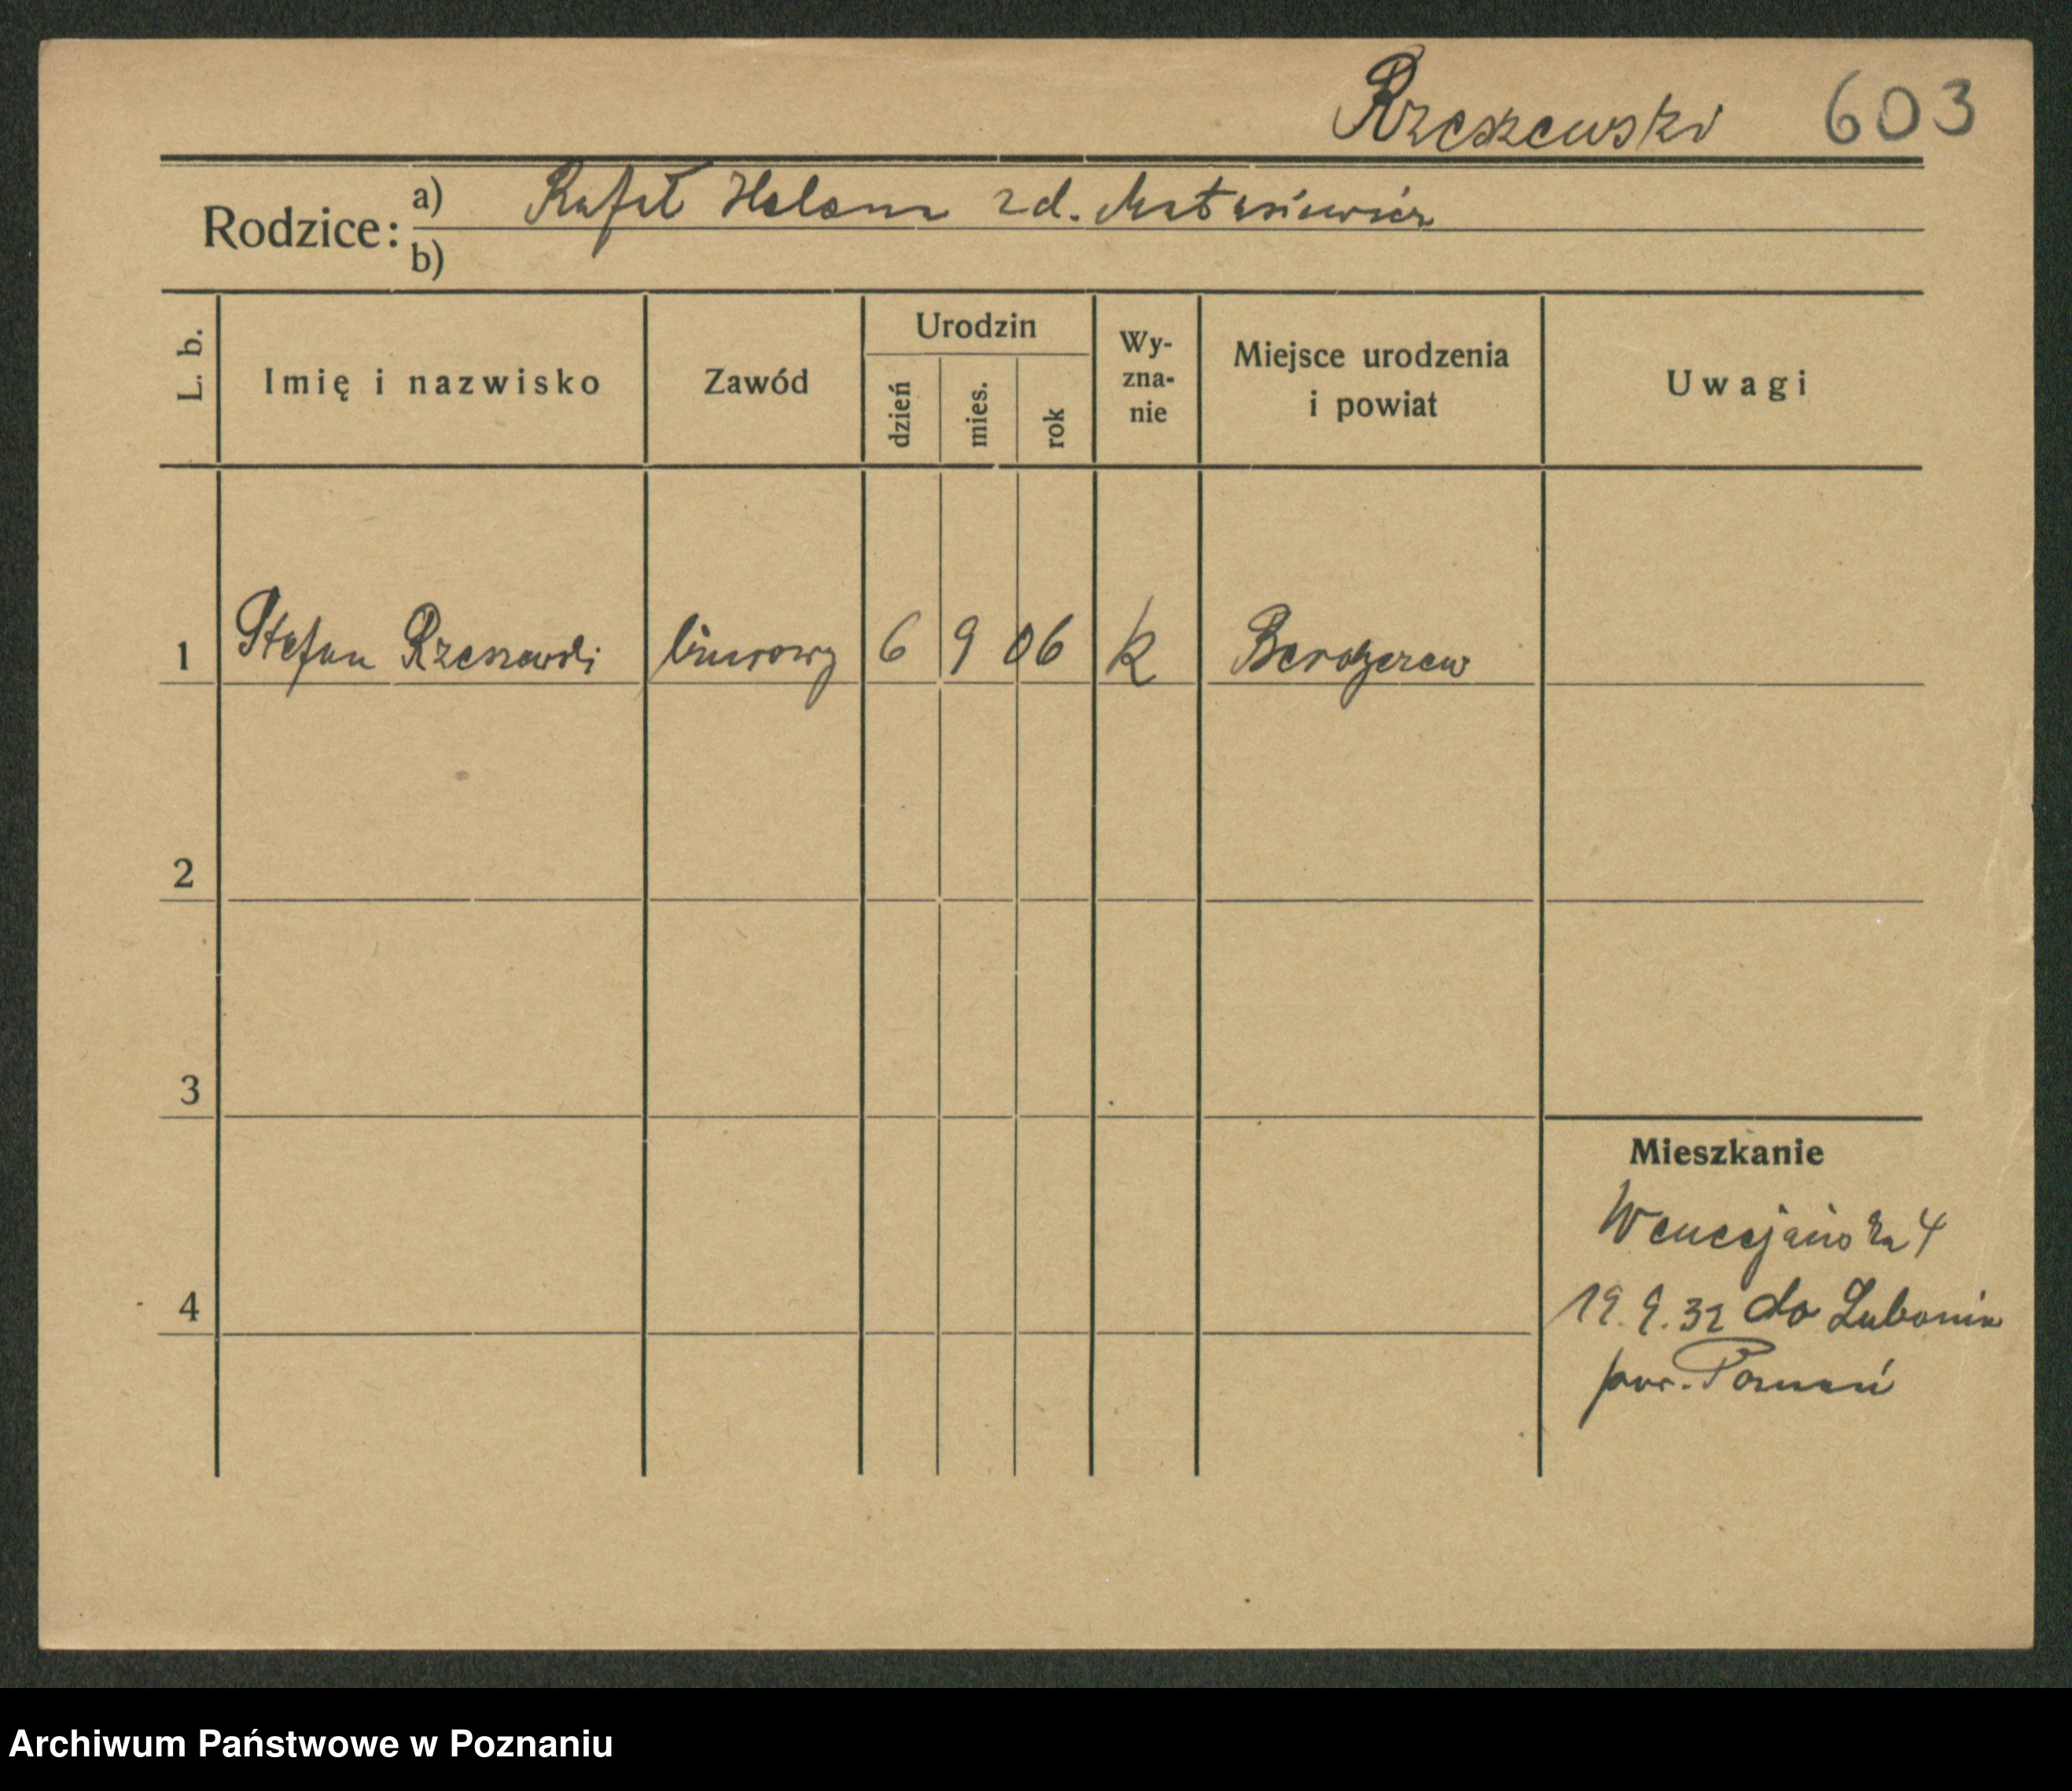 Rzeszewski 603
Rodzice: a) Rafał Helena zd. Matusiewicz
b)
L. b. Imię i nazwisko Zawód Urodzin dzień mies. rok Wy-zna-nie Miejsce urodzenia i powiat Uwagi
1 Stefan Rzeszewski biurowy 6 9 06 k
2
3
Mieszkanie
Wenecjańska 4
4
19.9.32 do Lubonia
pow. Poznań
Archiwum Państwowe w Poznaniu